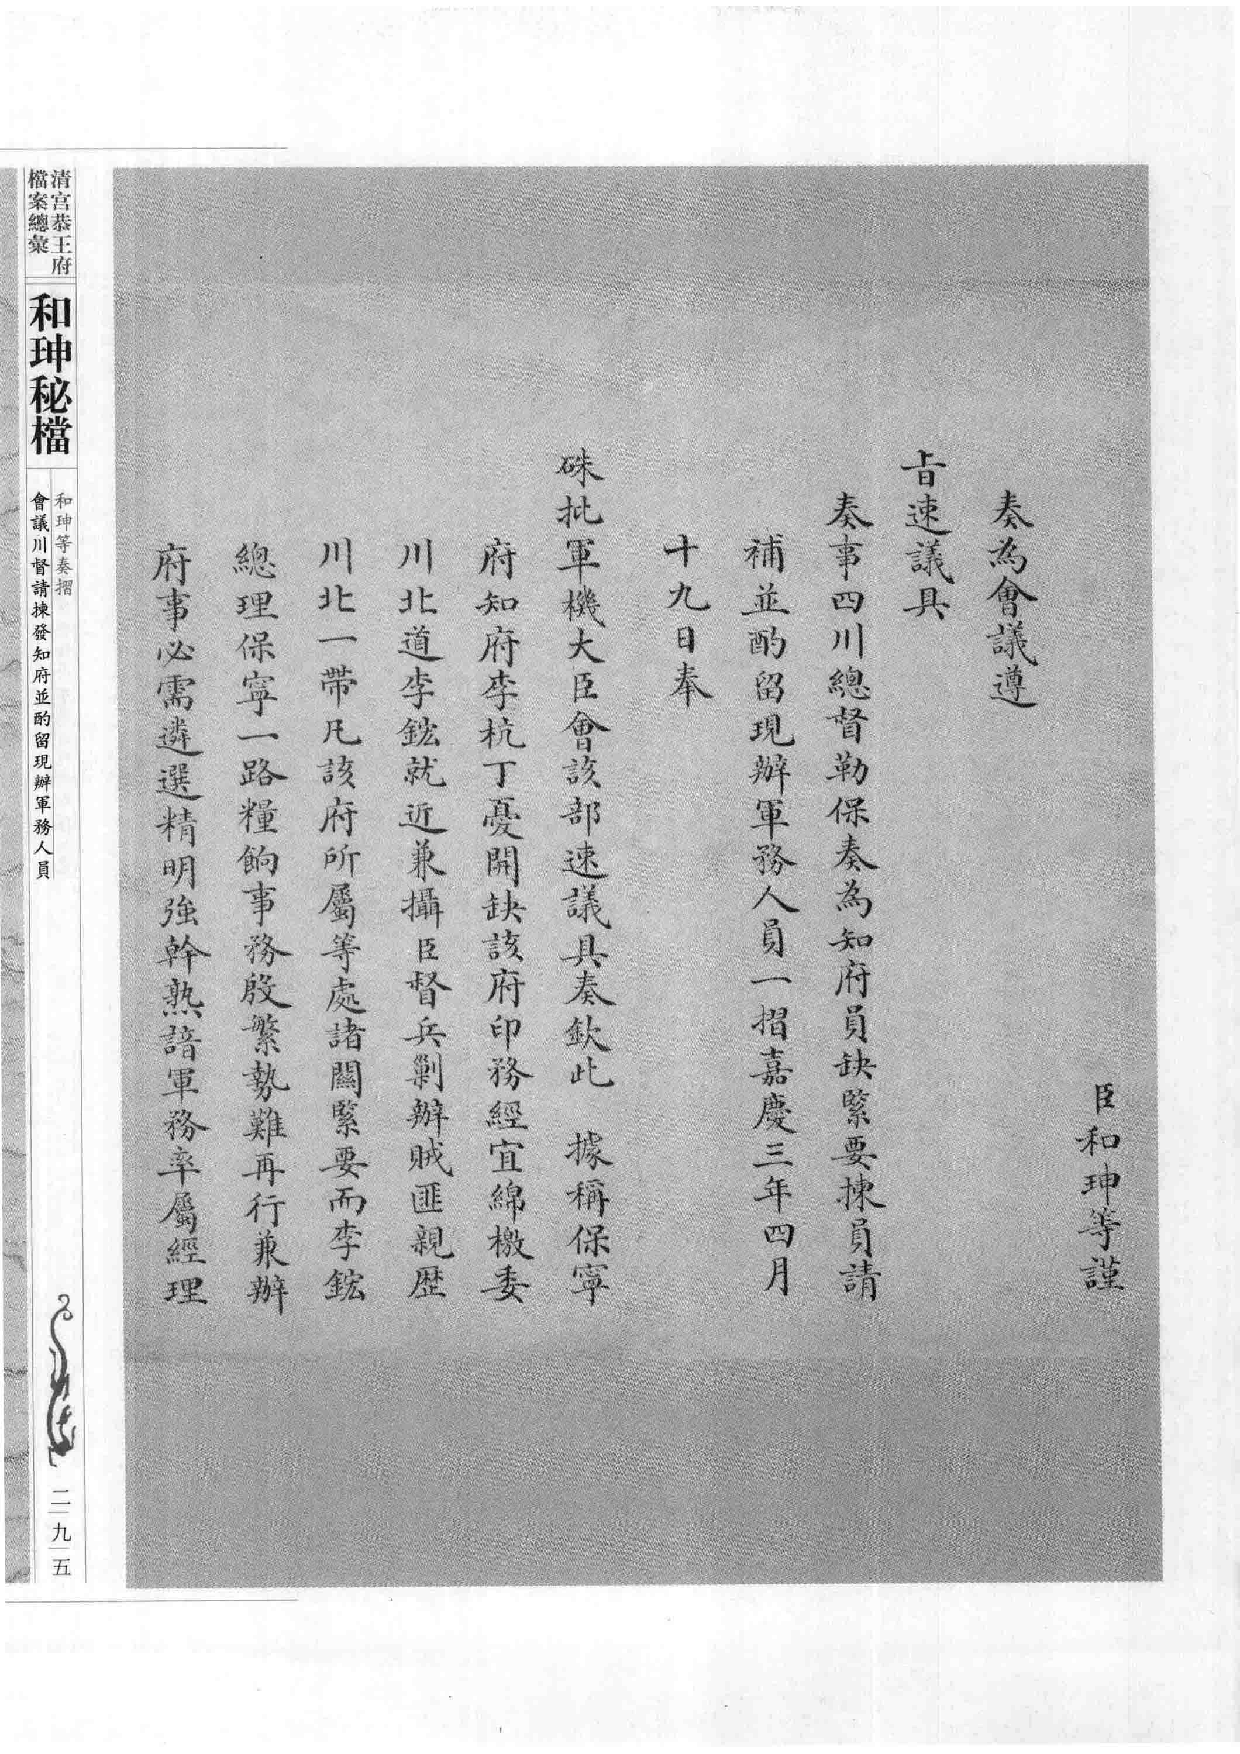 臣和珅等謹
奏為會議遵
旨速議具
奏事四川總督勒保奏為知府員缺緊要揀員請
補並酌留現辦軍務人員一摺嘉慶三年四月
十九日奉
硃批軍機大臣會該部速議具奏欽此 據稱保寧
府知府李杭丁憂開缺該府印務經宜綿檄委
川北道李鋐就近兼攝臣督兵剿辦賊匪親歷
川北一帶凡該府所屬等處諸關緊要而李鋐
總理保寧一路糧餉事務殷繁勢難再行兼辦
府事必需遴選精明強幹熟諳軍務率屬經理
清宮恭王府
檔案總彙
和珅秘檔
和珅等奏摺
會議川督請揀發知府並酌留現辦軍務人員
二九五